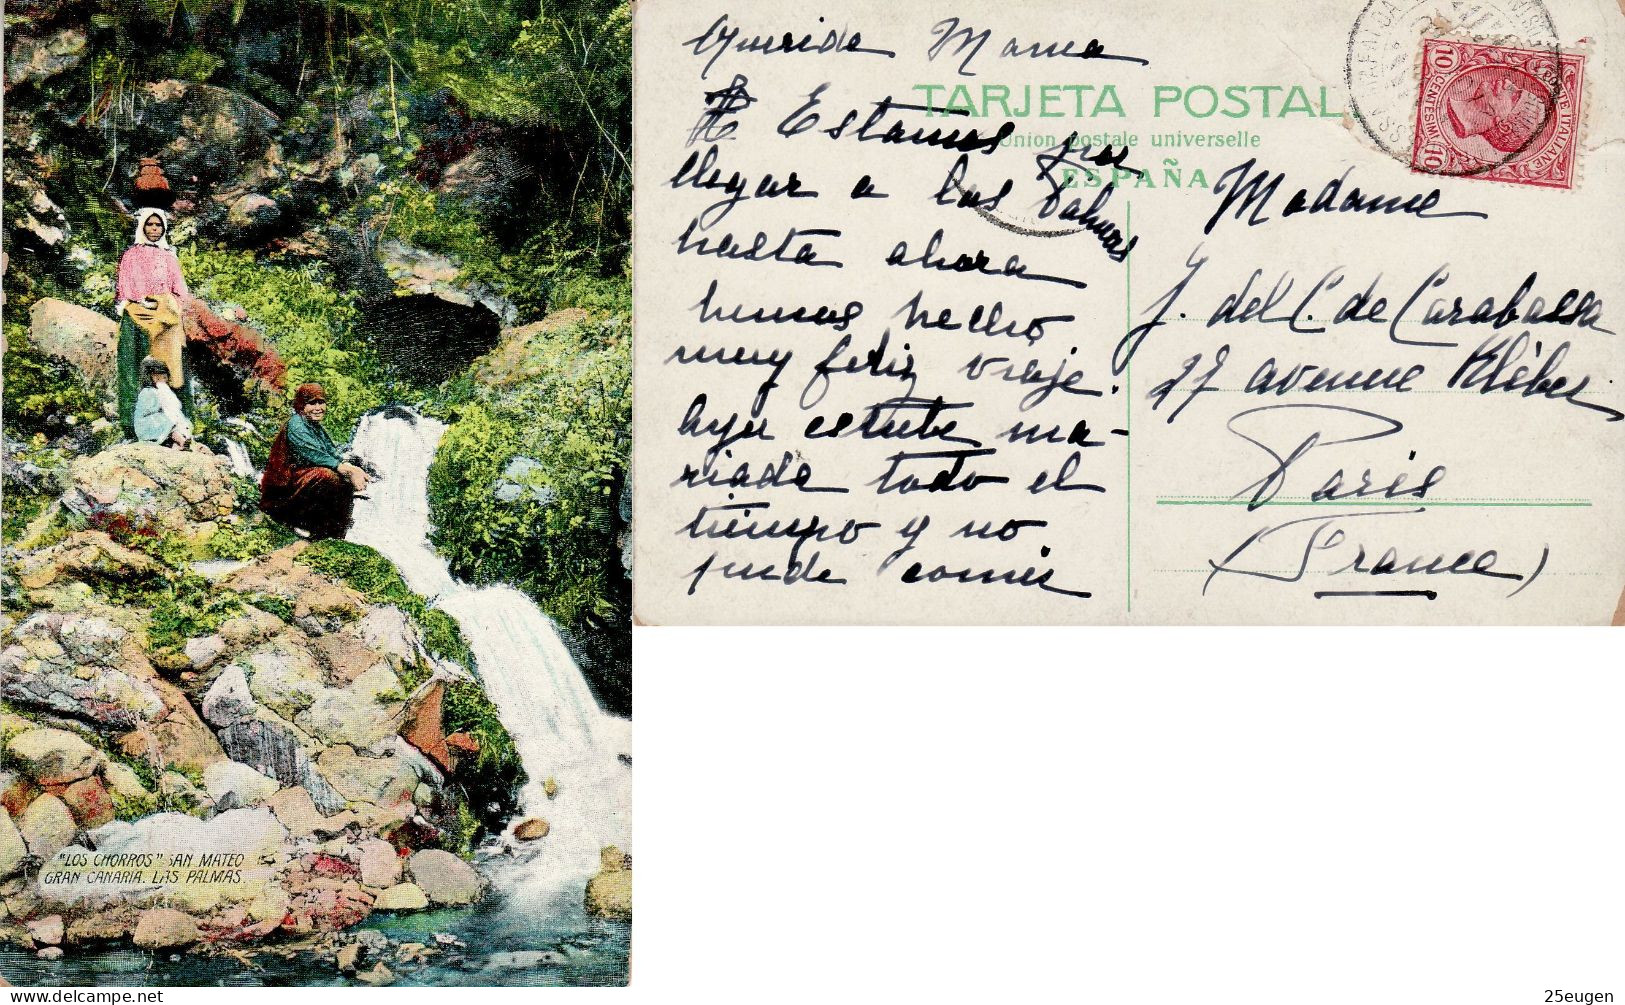 "LOS CHORROS" SAN MATEO
GRAN CANARIA. LAS PALMAS.
Querida Mama
Estamos por
llegar a las Palmas
hasta ahora
hemos hecho
muy feliz viaje.
Ayer estube ma-
riada todo el
tiempo y no
pude comer
TARJETA POSTAL
Union postale universelle
ESPAÑA
POSTE ITALIANE
10 CENTESIMI 10
Madame
J. del C. de Carabassa
27 avenue Kléber
Paris
(France)
25eugen